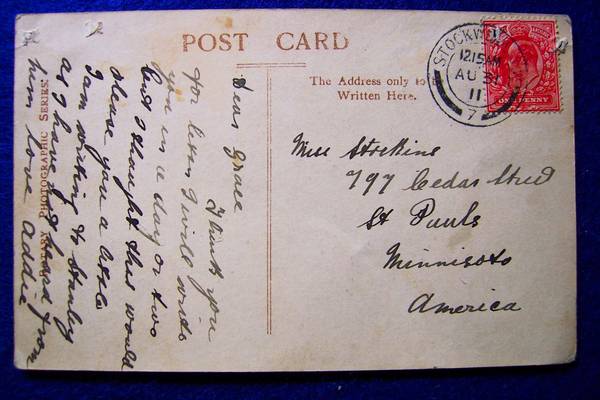 POST CARD
The Address only to
Written Here.
STOCKWELL
12.15AM
AU 31
11
7
ONE PENNY
Miss Stockins
797 Cedar Street
St Pauls
Minnisoto
America
Dear Grace
I thank you
for letter I will write
you in a day or two
but I thought this would
please you a little
I am writing to Stanley
as I have not heard from
him love Addie
PHOTOGRAPHIC SERIES.